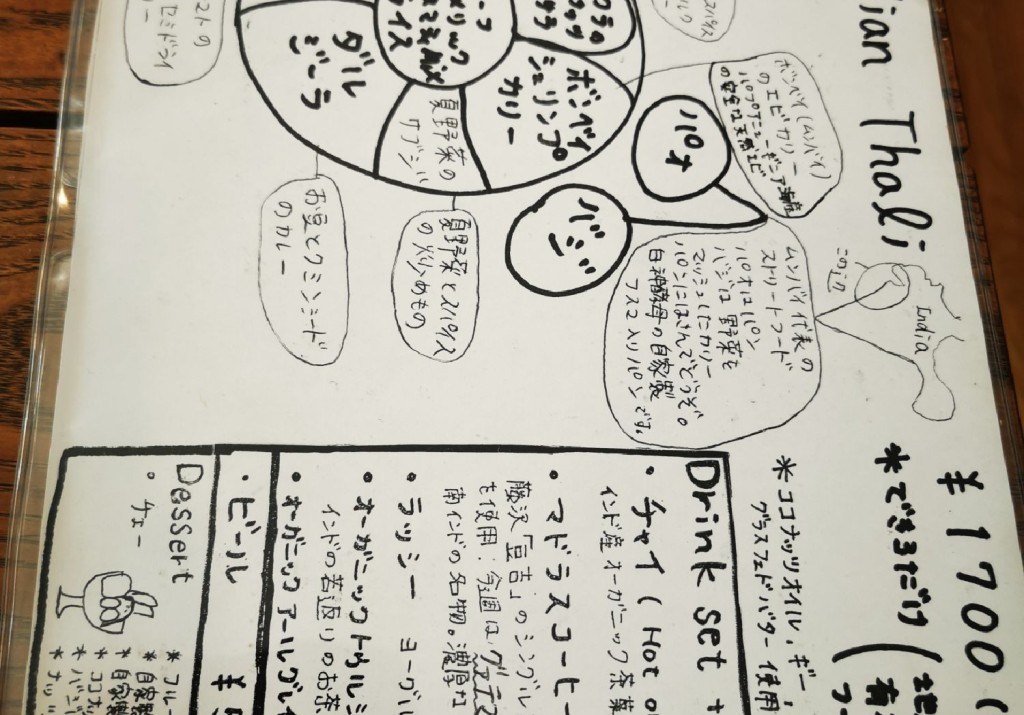 ian Thali
¥1700(
*できるだけ(
*ココナッツオイル、ギー、
グラスフェドバター使用
India
このへん
ボンベイ(ムンバイ)
のエビカリー
パプアニューギニア海産
の安全な天然エビ
パオ
バジ
ムンバイ代表の
ストリートフード
パオはパン
バジは野菜を
マッシュしたカリー
パンにはさんでどうぞ。
白神酵母の自家製
フスマ入りパンです。
ボンベイ
シュリンプ
カリー
夏野菜の
サブジ
ダル
ジーラ
ターメリック
ライス
夏野菜とスパイス
の炒めもの
お豆とクミンシード
のカレー
セミドライ
Drink set +
・チャイ(Hot o
インド産オーガニック茶葉
・マドラスコーヒ
藤沢「豆吉」のシングル
を使用。今週はグァテ
南インドの名物。濃厚な
・ラッシー ヨーグル
・オーガニックトゥルシ
インドの若返りのお茶
・オーガニックアールグレイ
・ビール ¥
Dessert
・チェー
*フルー
*自家製
*ココナッ
*自家製
*ババ
*ナッ